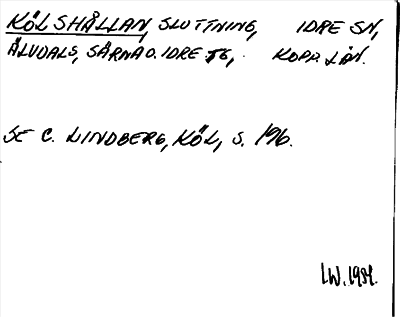 KÖLSHÅLLAN, SLUTTNING, IDRE SN,
ÄLVDALS, SÄRNA O. IDRE TG, KOPP. LÄN.
SE C. LINDBERG, KÖL, S. 196.
LW. 1984.